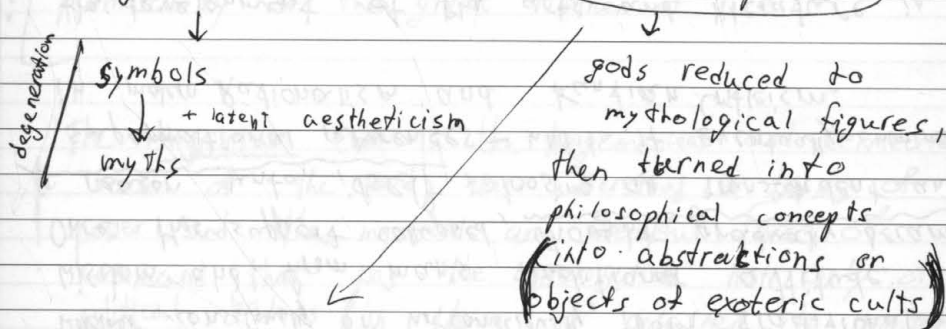 degeneration
symbols
+ latent aestheticism
myths
gods reduced to
mythological figures,
then turned into
philosophical concepts
(into abstractions or
objects of exoteric cults)